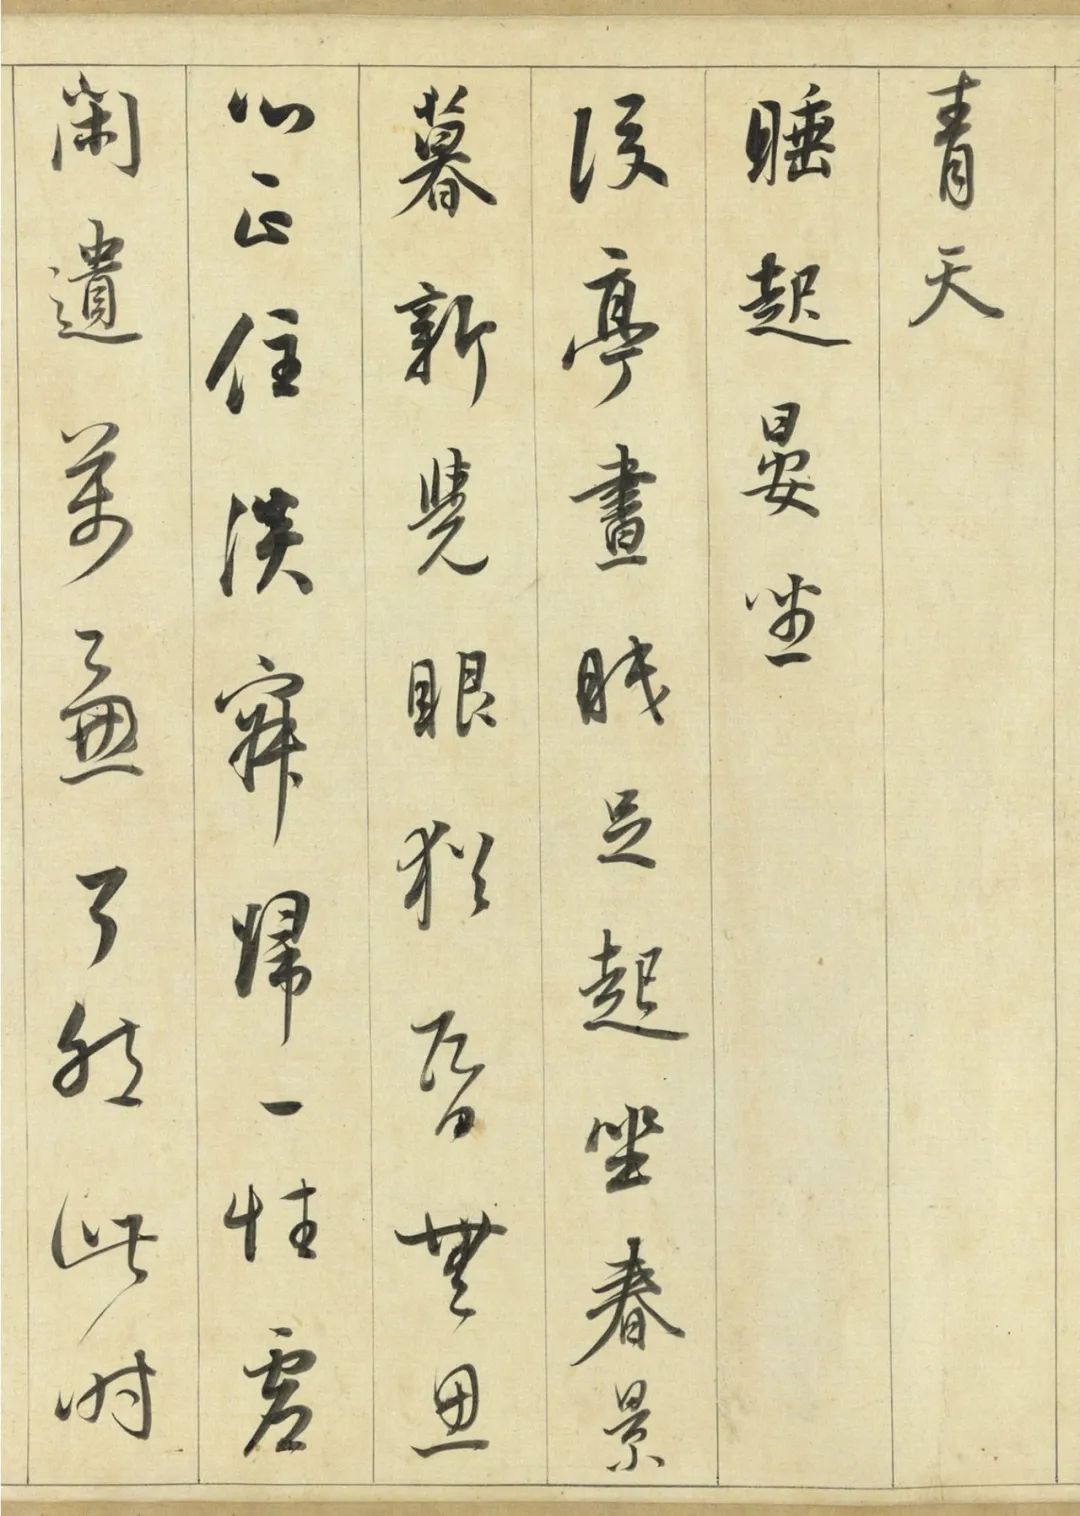 青天
睡起晏坐
後亭晝眠足起坐春景
暮新覺眼猶昏無思
心正住淡寂歸一性虛
閑遺萬慮了然此時